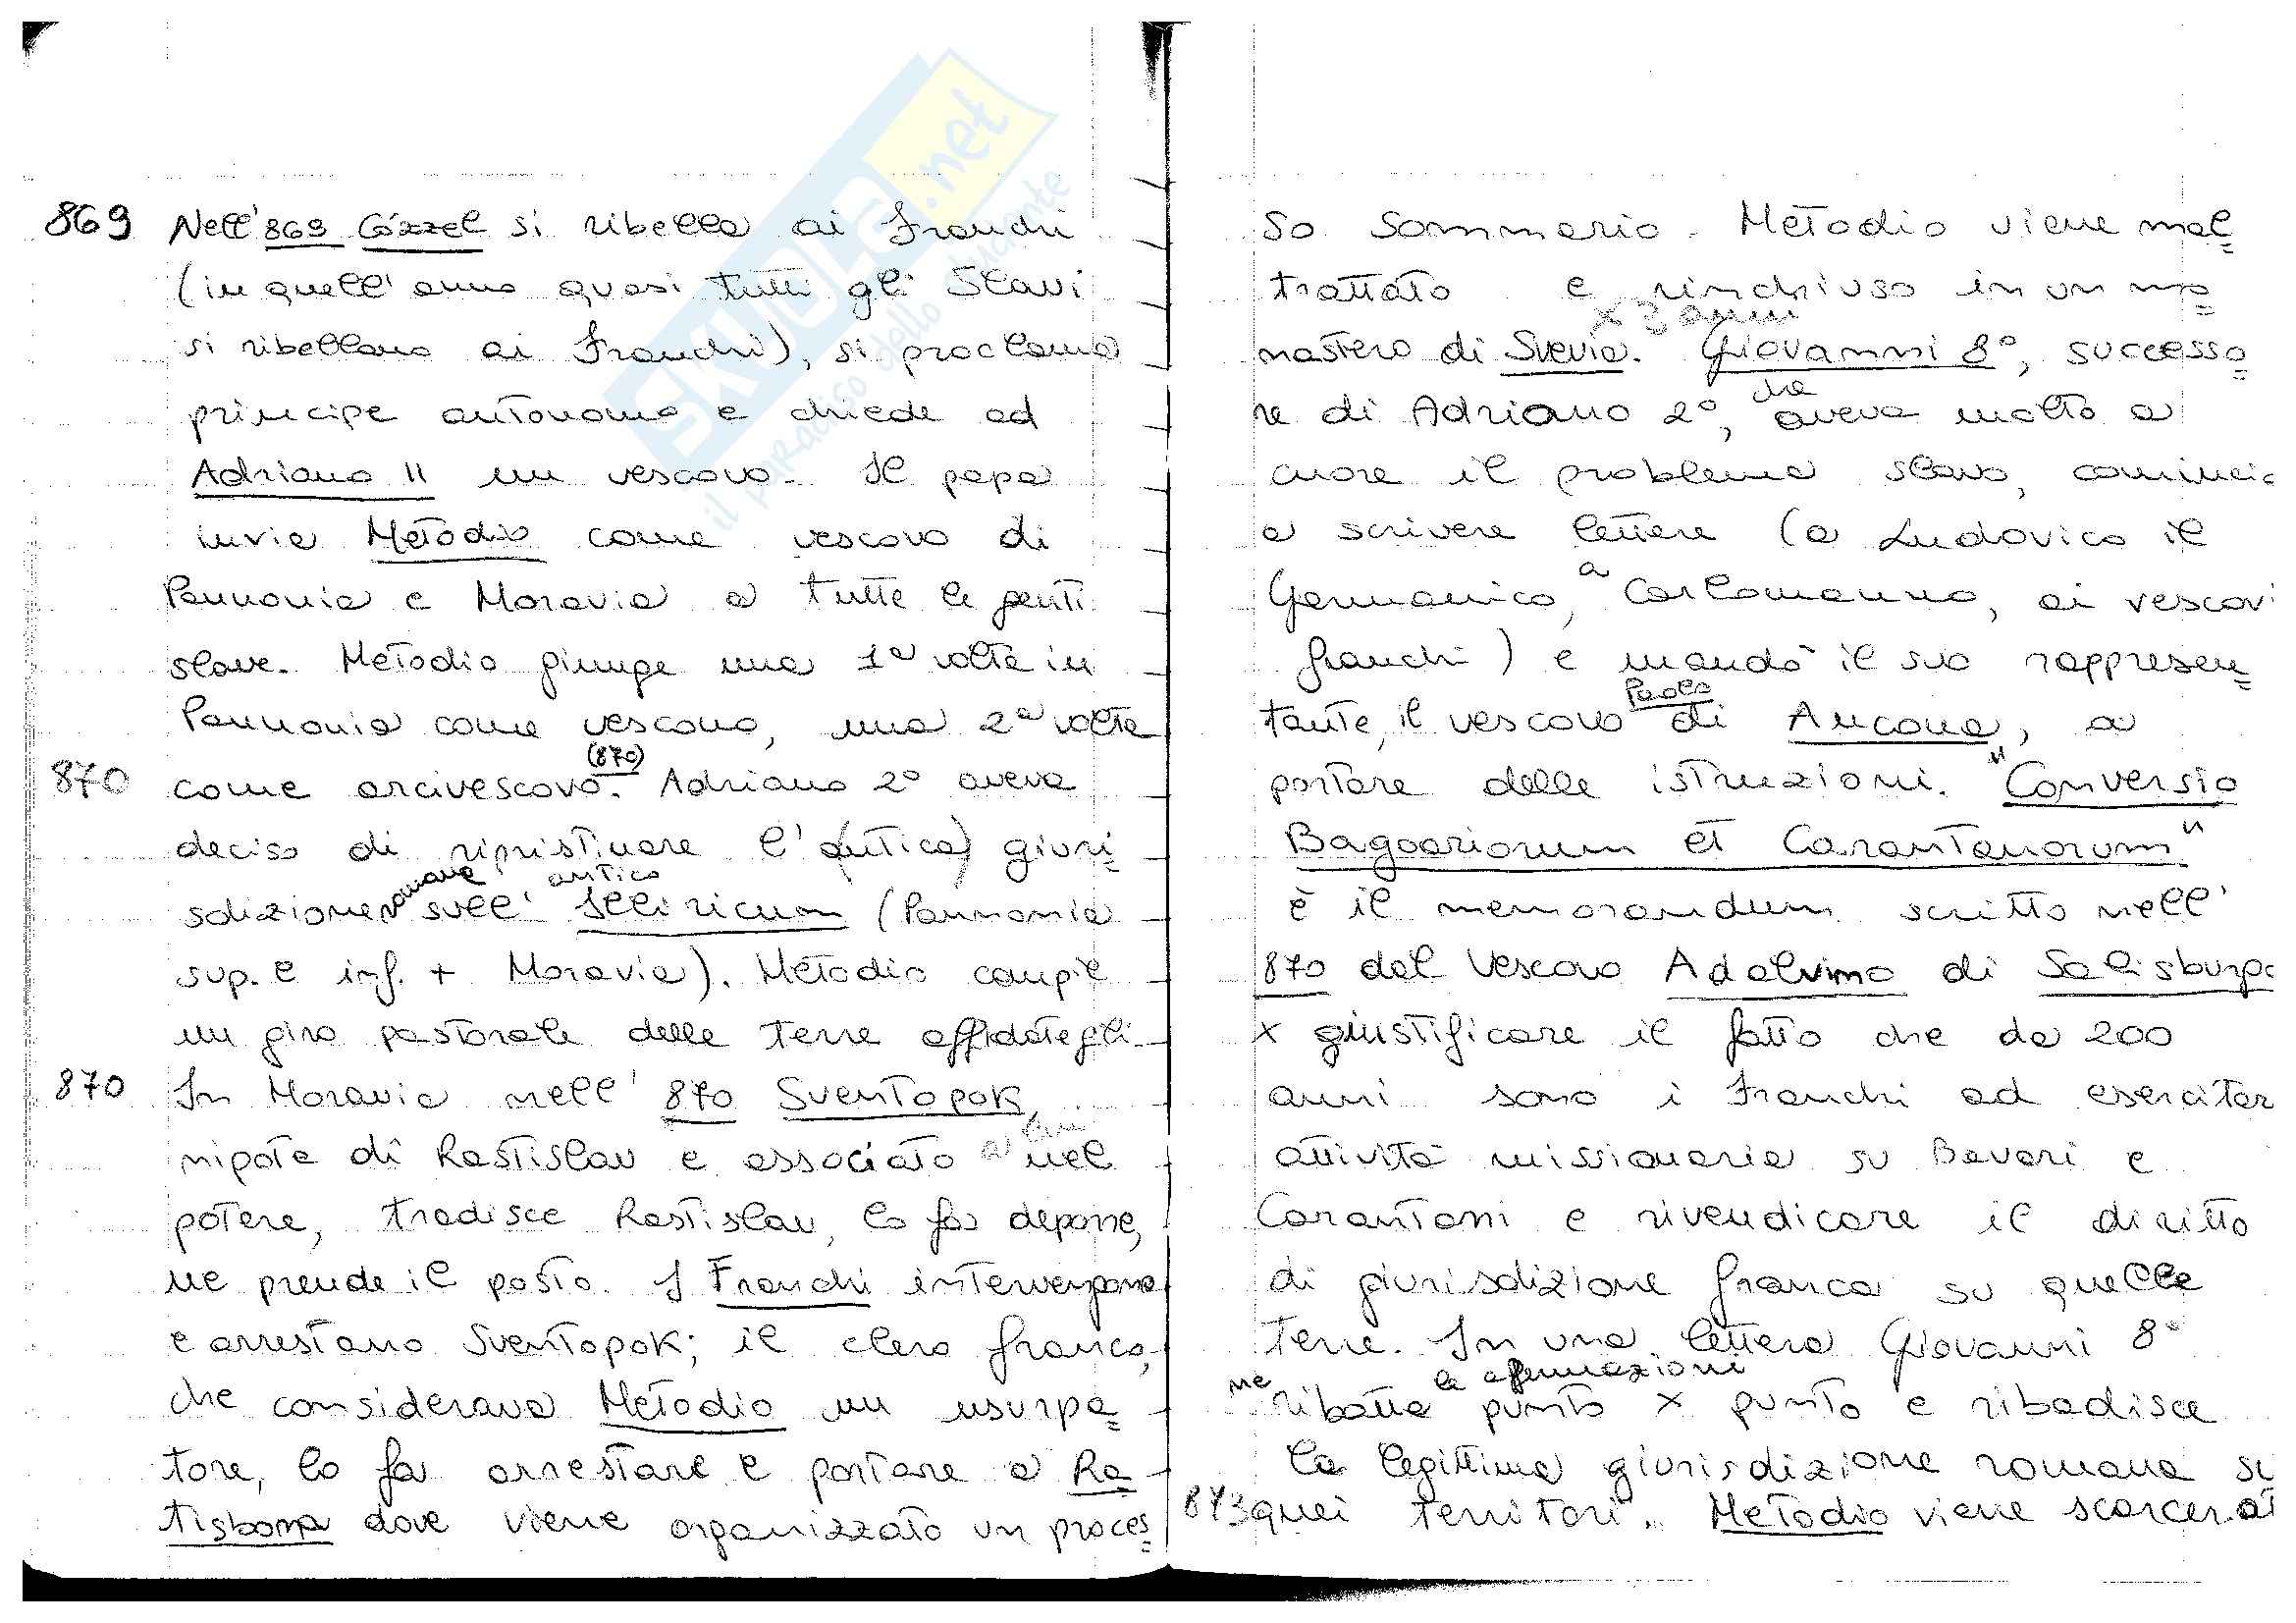 869 Nell'869 Cózzel si ribella ai Franchi
(in quell'anno quasi tutti gli Slavi
si ribellano ai Franchi), si proclama
principe autonomo e chiede ad
Adriano II un vescovo. Il papa
invia Metodio come vescovo di
Pannonia e Moravia a tutte le genti
slave. Metodio giunge una 1ª volta in
Pannonia come vescovo, una 2ª volta
(870)
870 come arcivescovo. Adriano 2° aveva
deciso di ripristinare l'(antica) giuri=
romana antico
sdizione sull' Illiricum (Pannonia
sup. e inf. + Moravia). Metodio compie
un giro pastorale delle terre affidategli.
870 In Moravia nell' 870 Sventopok,
a lui
nipote di Rastislav e associato nel
potere, tradisce Rastislav, lo fa deporre,
ne prende il posto. I Franchi intervengono
e arrestano Sventopok; il clero franco,
che considerava Metodio un usurpa=
tore, lo fa arrestare e portare a Ra
tisbona dove viene organizzato un proces=
so sommario. Metodio viene mal=
trattato e rinchiuso in un mo=
x 3 anni
nastero di Svevia. Giovanni 8°, successo=
che
re di Adriano 2°, aveva molto a
cuore il problema slavo, cominciò
a scrivere lettere (a Ludovico il
a
Germanico, Carlomanno, ai vescovi
franchi) e mandò il suo rappresen=
Paolo
tante, il vescovo di Ancona, a
portare delle istruzioni. "Conversio
Bagoariorum et Carantanorum"
è il memorandum scritto nell'
870 dal Vescovo Adalvino di Salisburgo
x giustificare il fatto che da 200
anni sono i Franchi ad esercitar
attività missionaria su Bavari e
Carantani e rivendicare il diritto
di giurisdizione franca su quelle
terre. In una lettera Giovanni 8°
ne le affermazioni
ribatte punto x punto e ribadisce
la legittima giurisdizione romana su
873 quei territori. Metodio viene scarcerat
SKUOLA.net
il paradiso dello studente